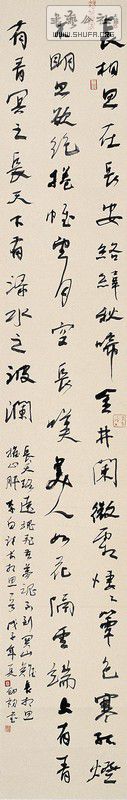 WWW.SHUFA.ORG
長相思在長安絡緯秋啼金井闌微霜淒淒簟色寒孤燈
不明思欲絕捲帷望月空長嘆美人如花隔雲端上有青
有青冥之長天下有淥水之波瀾
長天路遠魂飛苦夢魂不到關山難長相思
摧心肝 李白詩長相思一首 戊子年夏